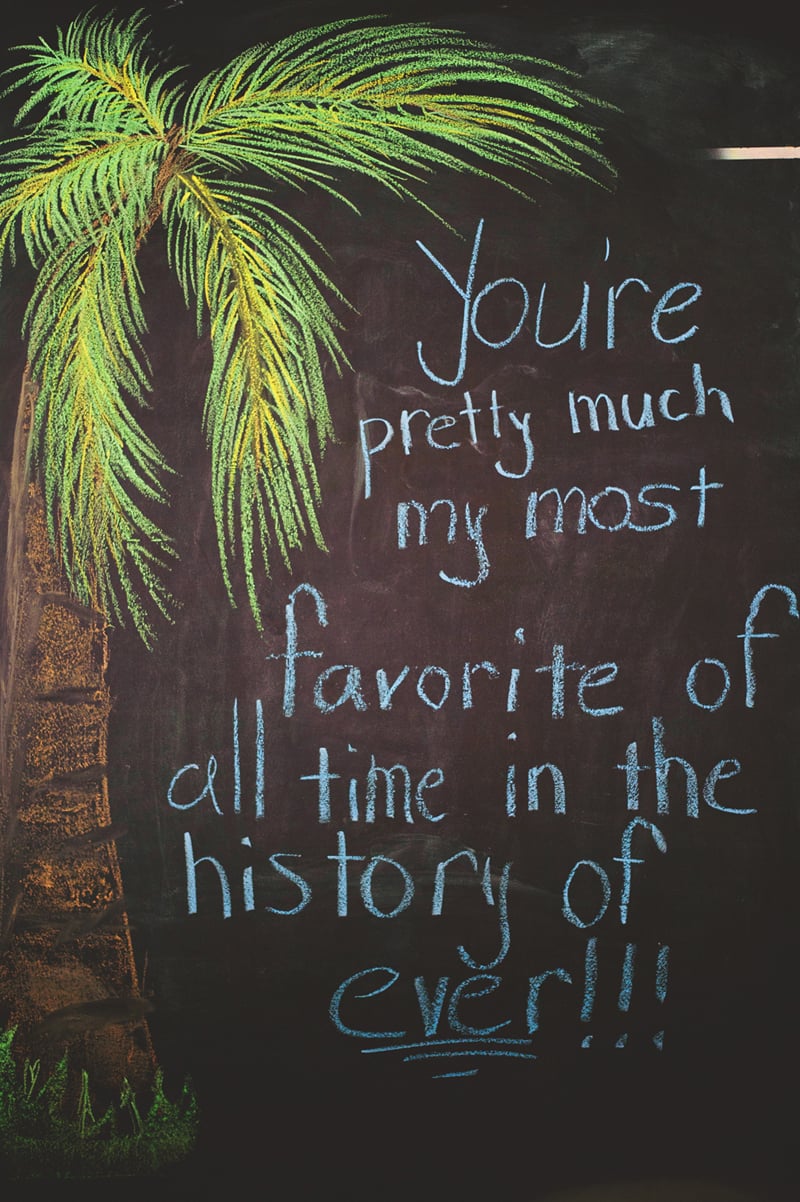 You're
pretty much
my most
favorite of
all time in the
history of
ever!!!